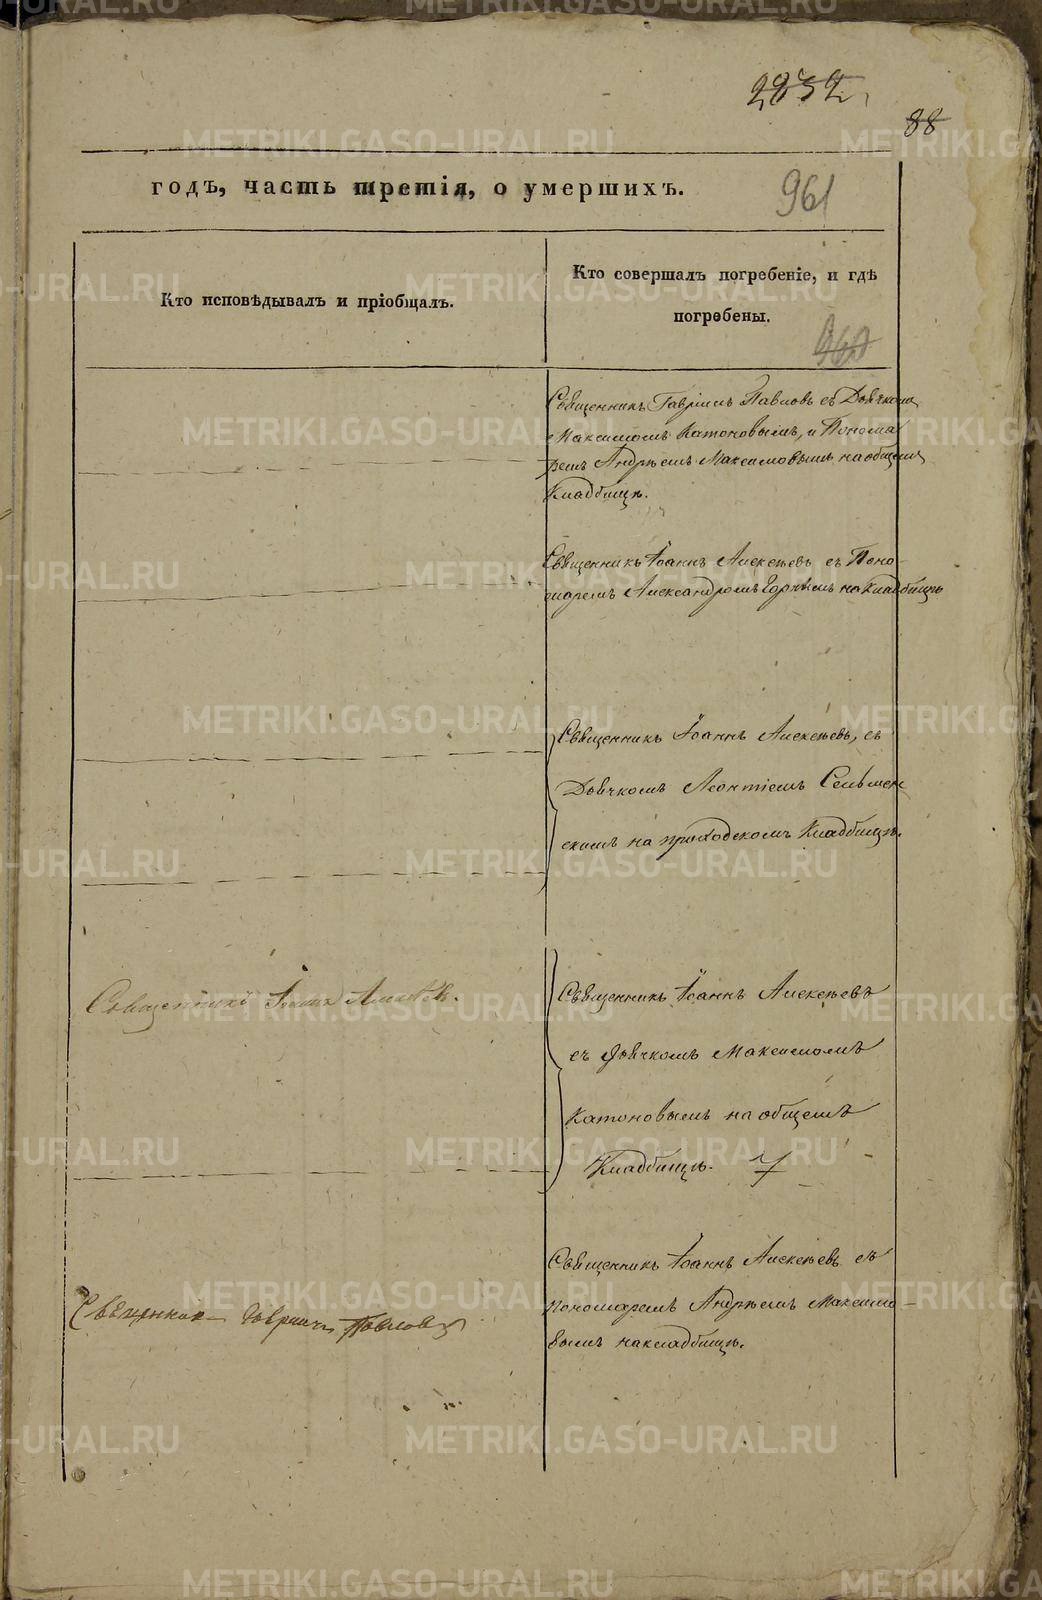 2832
88
годъ, часть третія, о умершихъ.
961
Кто исповѣдывалъ и пріобщалъ.
Кто совершалъ погребеніе, и гдѣ
погребены.
960
Священникъ Гавріилъ Павловъ съ Дьячкомъ
Максимомъ Катоновымъ, и Понома
ремъ Андрѣемъ Максимовымъ на общемъ
Кладбищѣ.
Священникъ Іоаннъ Алексѣевъ съ Поно-
маремъ Александромъ на Кладбищѣ
Священникъ Іоаннъ Алексѣевъ, съ
Дьячкомъ Леонтіемъ Сельмен
скимъ на приходскомъ Кладбищѣ.
Священникъ Іоаннъ
Священникъ Іоаннъ Алексѣевъ
съ Дьячкомъ Максимомъ
Катоновымъ на общемъ
Кладбищѣ. 7
Священникъ Іоаннъ Алексѣевъ съ
пономаремъ Андрѣемъ Максимо-
вымъ на кладбищѣ.
Священникъ Гавриилъ Павловъ
METRIKI.GASO-URAL.RU